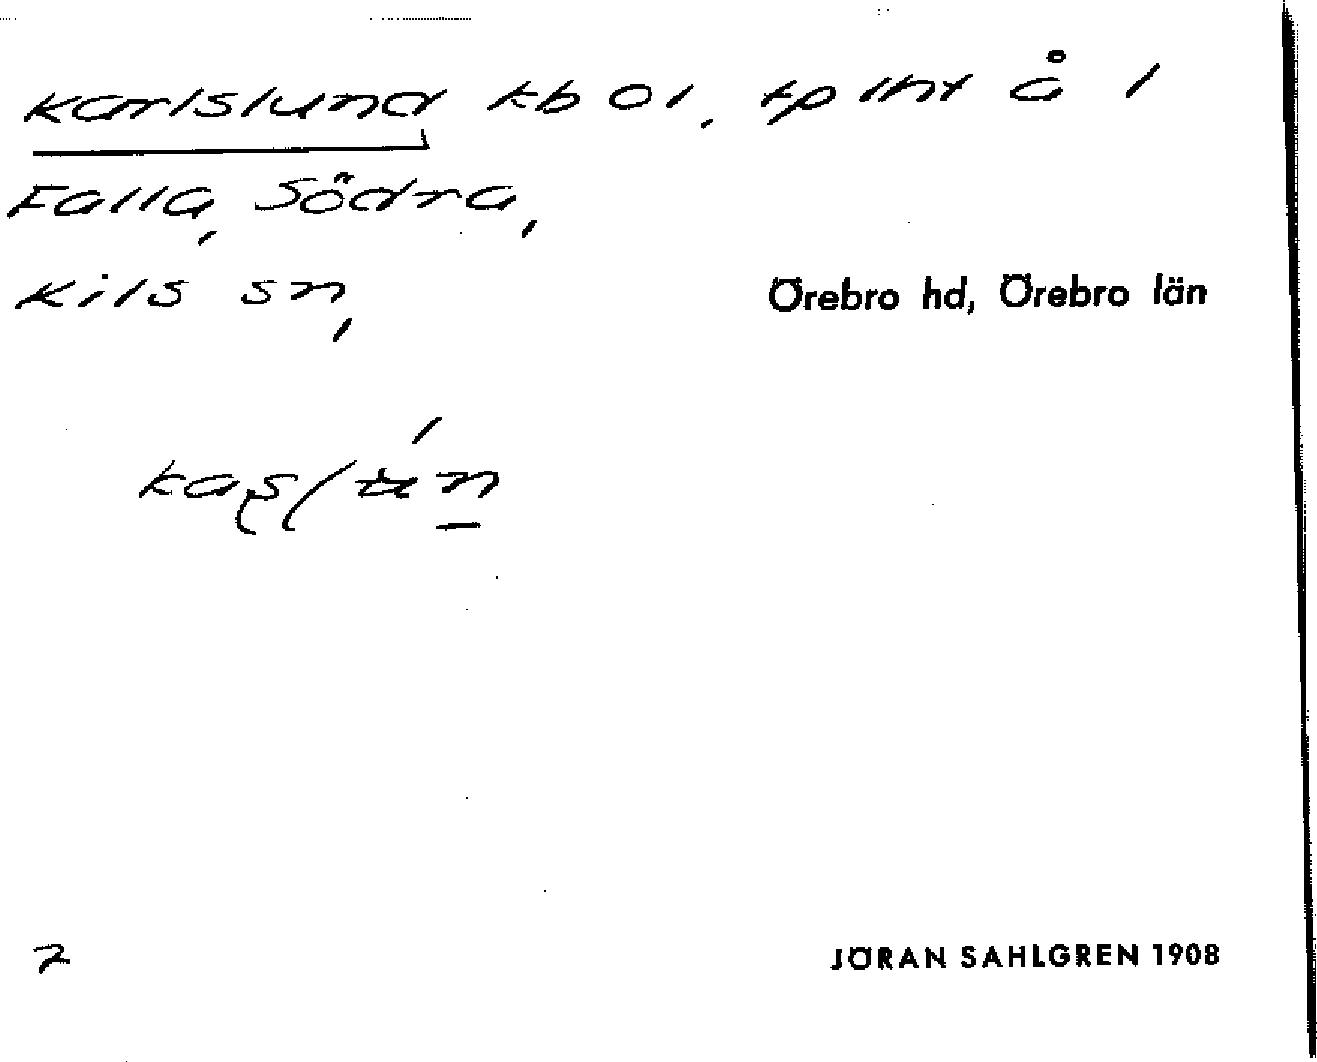 Karlslund kb ol, tplht å 1
Falla, Södra,
Kils sn, Örebro hd, Örebro län
2
JÖRAN SAHLGREN 1908